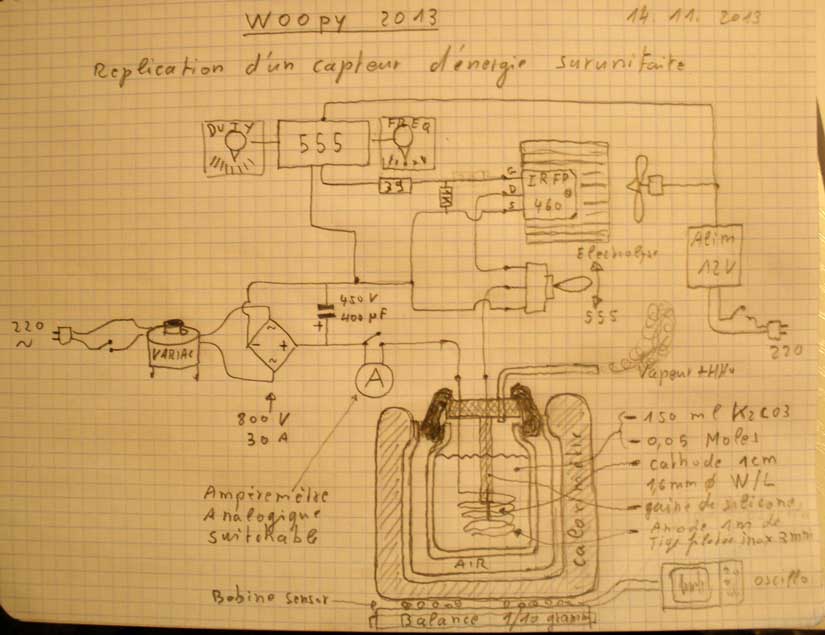 WOOPY 2013
14. 11. 2013
Replication d'un capteur d'énergie surunitaire
DUTY
555
FREQ
39
1K
G
D
S
IRFP
460
Alim
12V
Electrolyse
555
220
~
VARIAC
~
- +
~
450V
400µF
+
A
220
Vapeur + HHO
800V
30A
- 150 ml K2CO3
- 0,05 Moles
- cathode 1cm
1,6mm Ø W/L
- gaine de silicone
- Anode 1m de
Tige filetée inox 3mm
Ampèremètre
Analogique
Switchable
calorimètre
AIR
oscillo
Bobine sensor
Balance 1/10 gramme